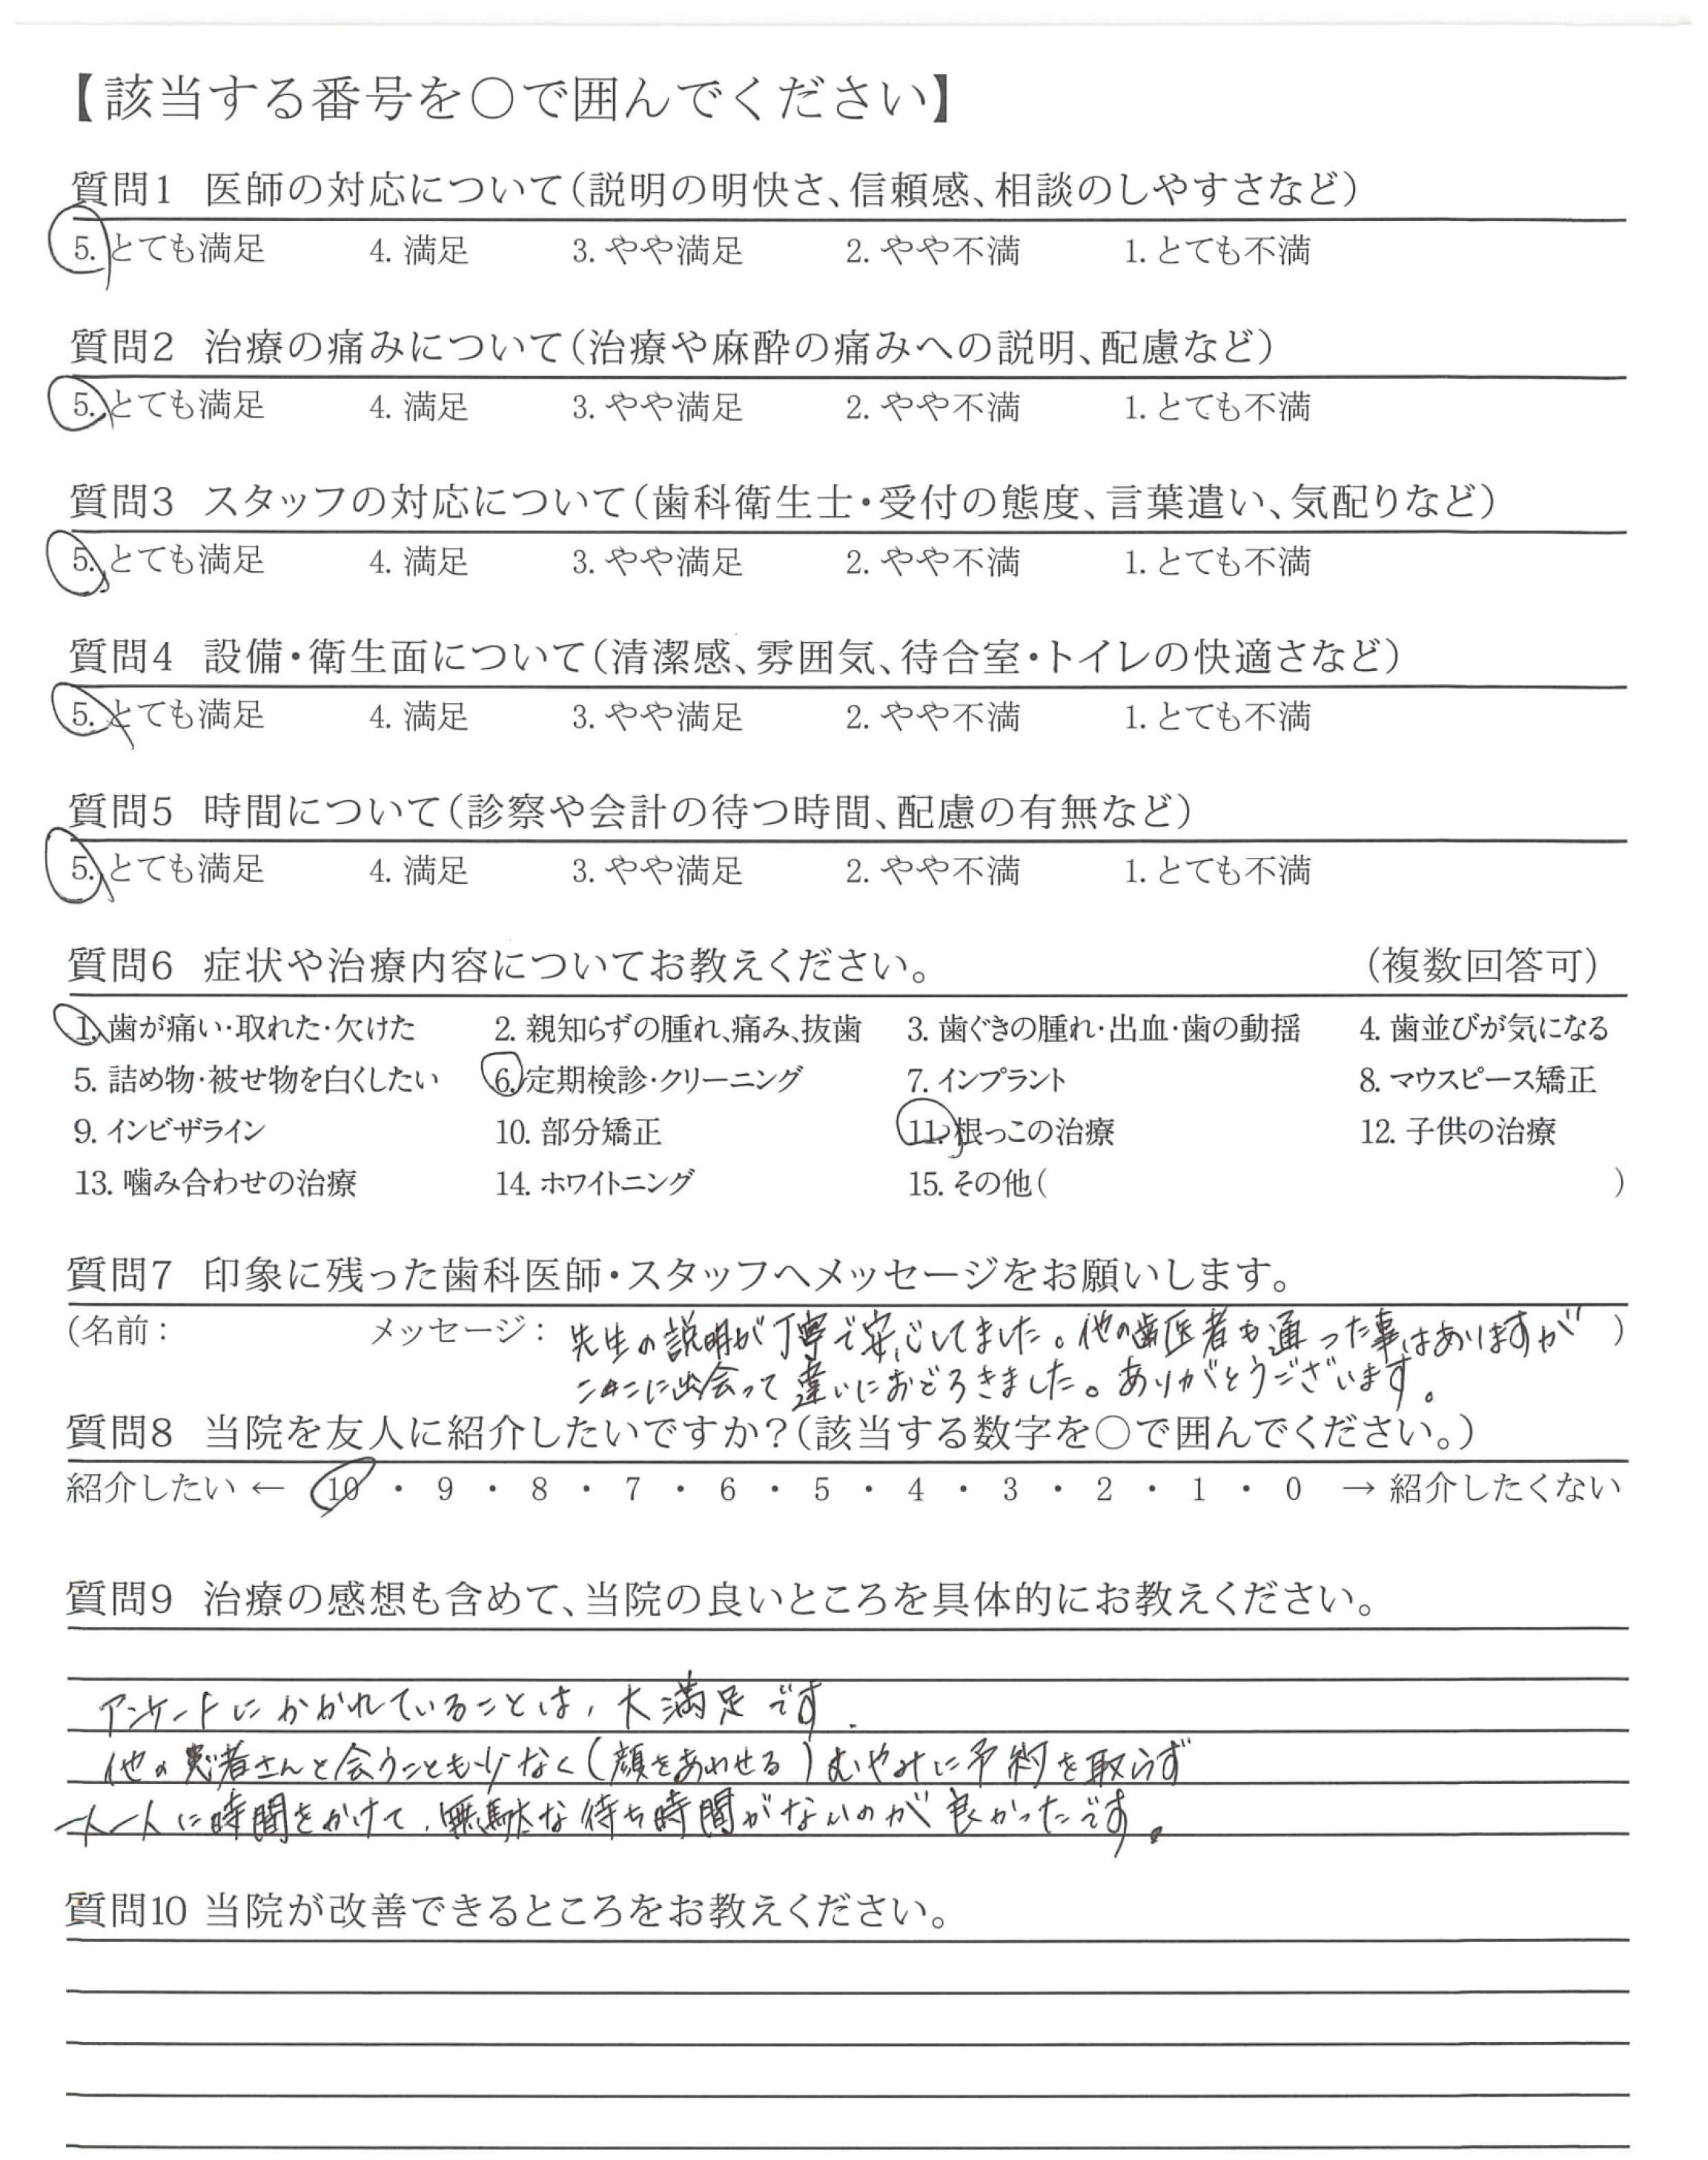 【該当する番号を〇で囲んでください】
質問1 医師の対応について(説明の明快さ、信頼感、相談のしやすさなど)
5. とても満足 4. 満足 3. やや満足 2. やや不満 1. とても不満
質問2 治療の痛みについて(治療や麻酔の痛みへの説明、配慮など)
5. とても満足 4. 満足 3. やや満足 2. やや不満 1. とても不満
質問3 スタッフの対応について(歯科衛生士・受付の態度、言葉遣い、気配りなど)
5. とても満足 4. 満足 3. やや満足 2. やや不満 1. とても不満
質問4 設備・衛生面について(清潔感、雰囲気、待合室・トイレの快適さなど)
5. とても満足 4. 満足 3. やや満足 2. やや不満 1. とても不満
質問5 時間について(診察や会計の待つ時間、配慮の有無など)
5. とても満足 4. 満足 3. やや満足 2. やや不満 1. とても不満
質問6 症状や治療内容についてお教えください。 (複数回答可)
1. 歯が痛い・取れた・欠けた 2. 親知らずの腫れ、痛み、抜歯 3. 歯ぐきの腫れ・出血・歯の動揺 4. 歯並びが気になる
5. 詰め物・被せ物を白くしたい 6. 定期検診・クリーニング 7. インプラント 8. マウスピース矯正
9. インビザライン 10. 部分矯正 11. 根っこの治療 12. 子供の治療
13. 噛み合わせの治療 14. ホワイトニング 15. その他( )
質問7 印象に残った歯科医師・スタッフへメッセージをお願いします。
(名前: メッセージ: 先生の説明が丁寧で安心してました。他の歯医者も通った事はありますが )
ここに出会って違いにおどろきました。ありがとうございます。
質問8 当院を友人に紹介したいですか?(該当する数字を〇で囲んでください。)
紹介したい ← 10 ・ 9 ・ 8 ・ 7 ・ 6 ・ 5 ・ 4 ・ 3 ・ 2 ・ 1 ・ 0 → 紹介したくない
質問9 治療の感想も含めて、当院の良いところを具体的にお教えください。
アンケートにかかれていることは、大満足です.
他の患者さんと会うことも少なく(顔をあわせる)むやみに予約を取らず
一人一人に時間をかけて、無駄な待ち時間がないのが良かったです。
質問10 当院が改善できるところをお教えください。